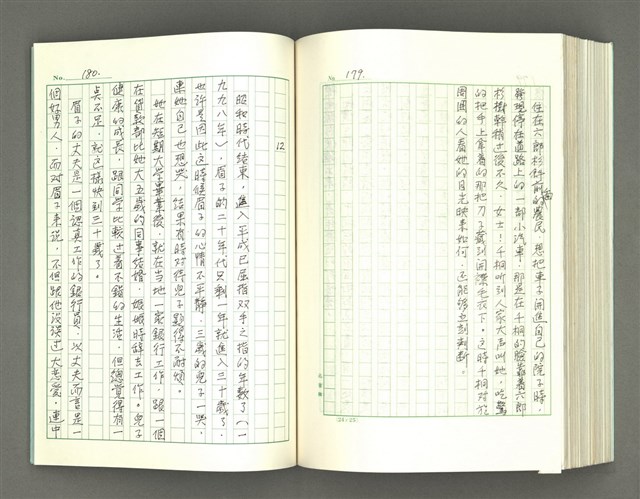 No. 179.
住在六郎杉斜前面的農民，想把車子開進自己的院子時，
發現停在道路上的一部小汽車，那是在千桐的臉靠着六郎
杉樹幹稍过後不久，女士！千桐听到人家大声叫她，吃驚
的把手上拿着的那把刀子
毛衣下。这時千桐对於
周圍的人看她的目光映来如何，还能够立刻判断。
(24×25)
No. 180.
12
昭和時代結束，進入平成已屈指双手之指的年数了（一
九九八年），眉子的二十年代只剩一年就進入三十歲了。
也许是因此这時候眉子的心情不平静，三歲的兒子一哭，
連她自己也想哭，結果有時对待兒子
得不耐煩。
她在短期大学畢業後，就在当地一家銀行工作，跟一個
在貸款部比她大五歲的同事結婚，
時辞去工作。兒子
健康的成長，跟同学比較过着不錯的生活，但總覚得有一
点不足，就这樣快到三十歲了。
眉子的丈夫是一個認真工作的銀行員，以丈夫而言是一
個好男人，而对眉子来说，不但跟他没談过大恋愛，連中